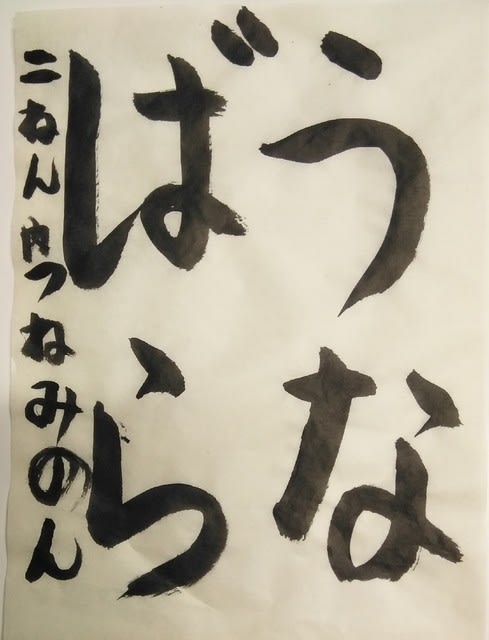 うな
ばら
二ねん内つねみのん